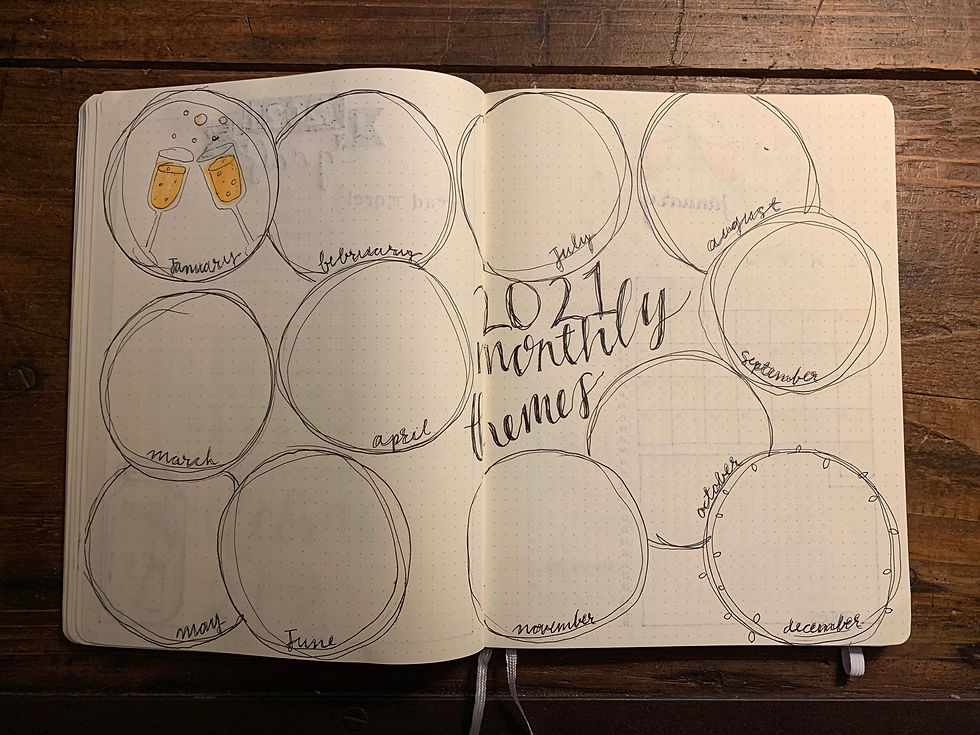 January
february
march
april
may
June
July
august
2021
monthly
themes
september
october
november
december